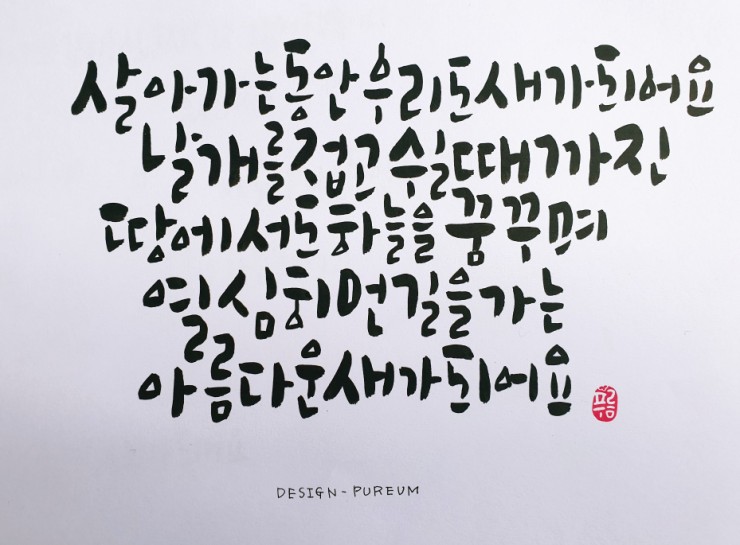 살아가는동안우리도새가되어요
날개를접고쉬일때까진
땅에서도하늘을꿈꾸며
열심히먼길을가는
아름다운새가되어요
푸름
DESIGN-PUREUM